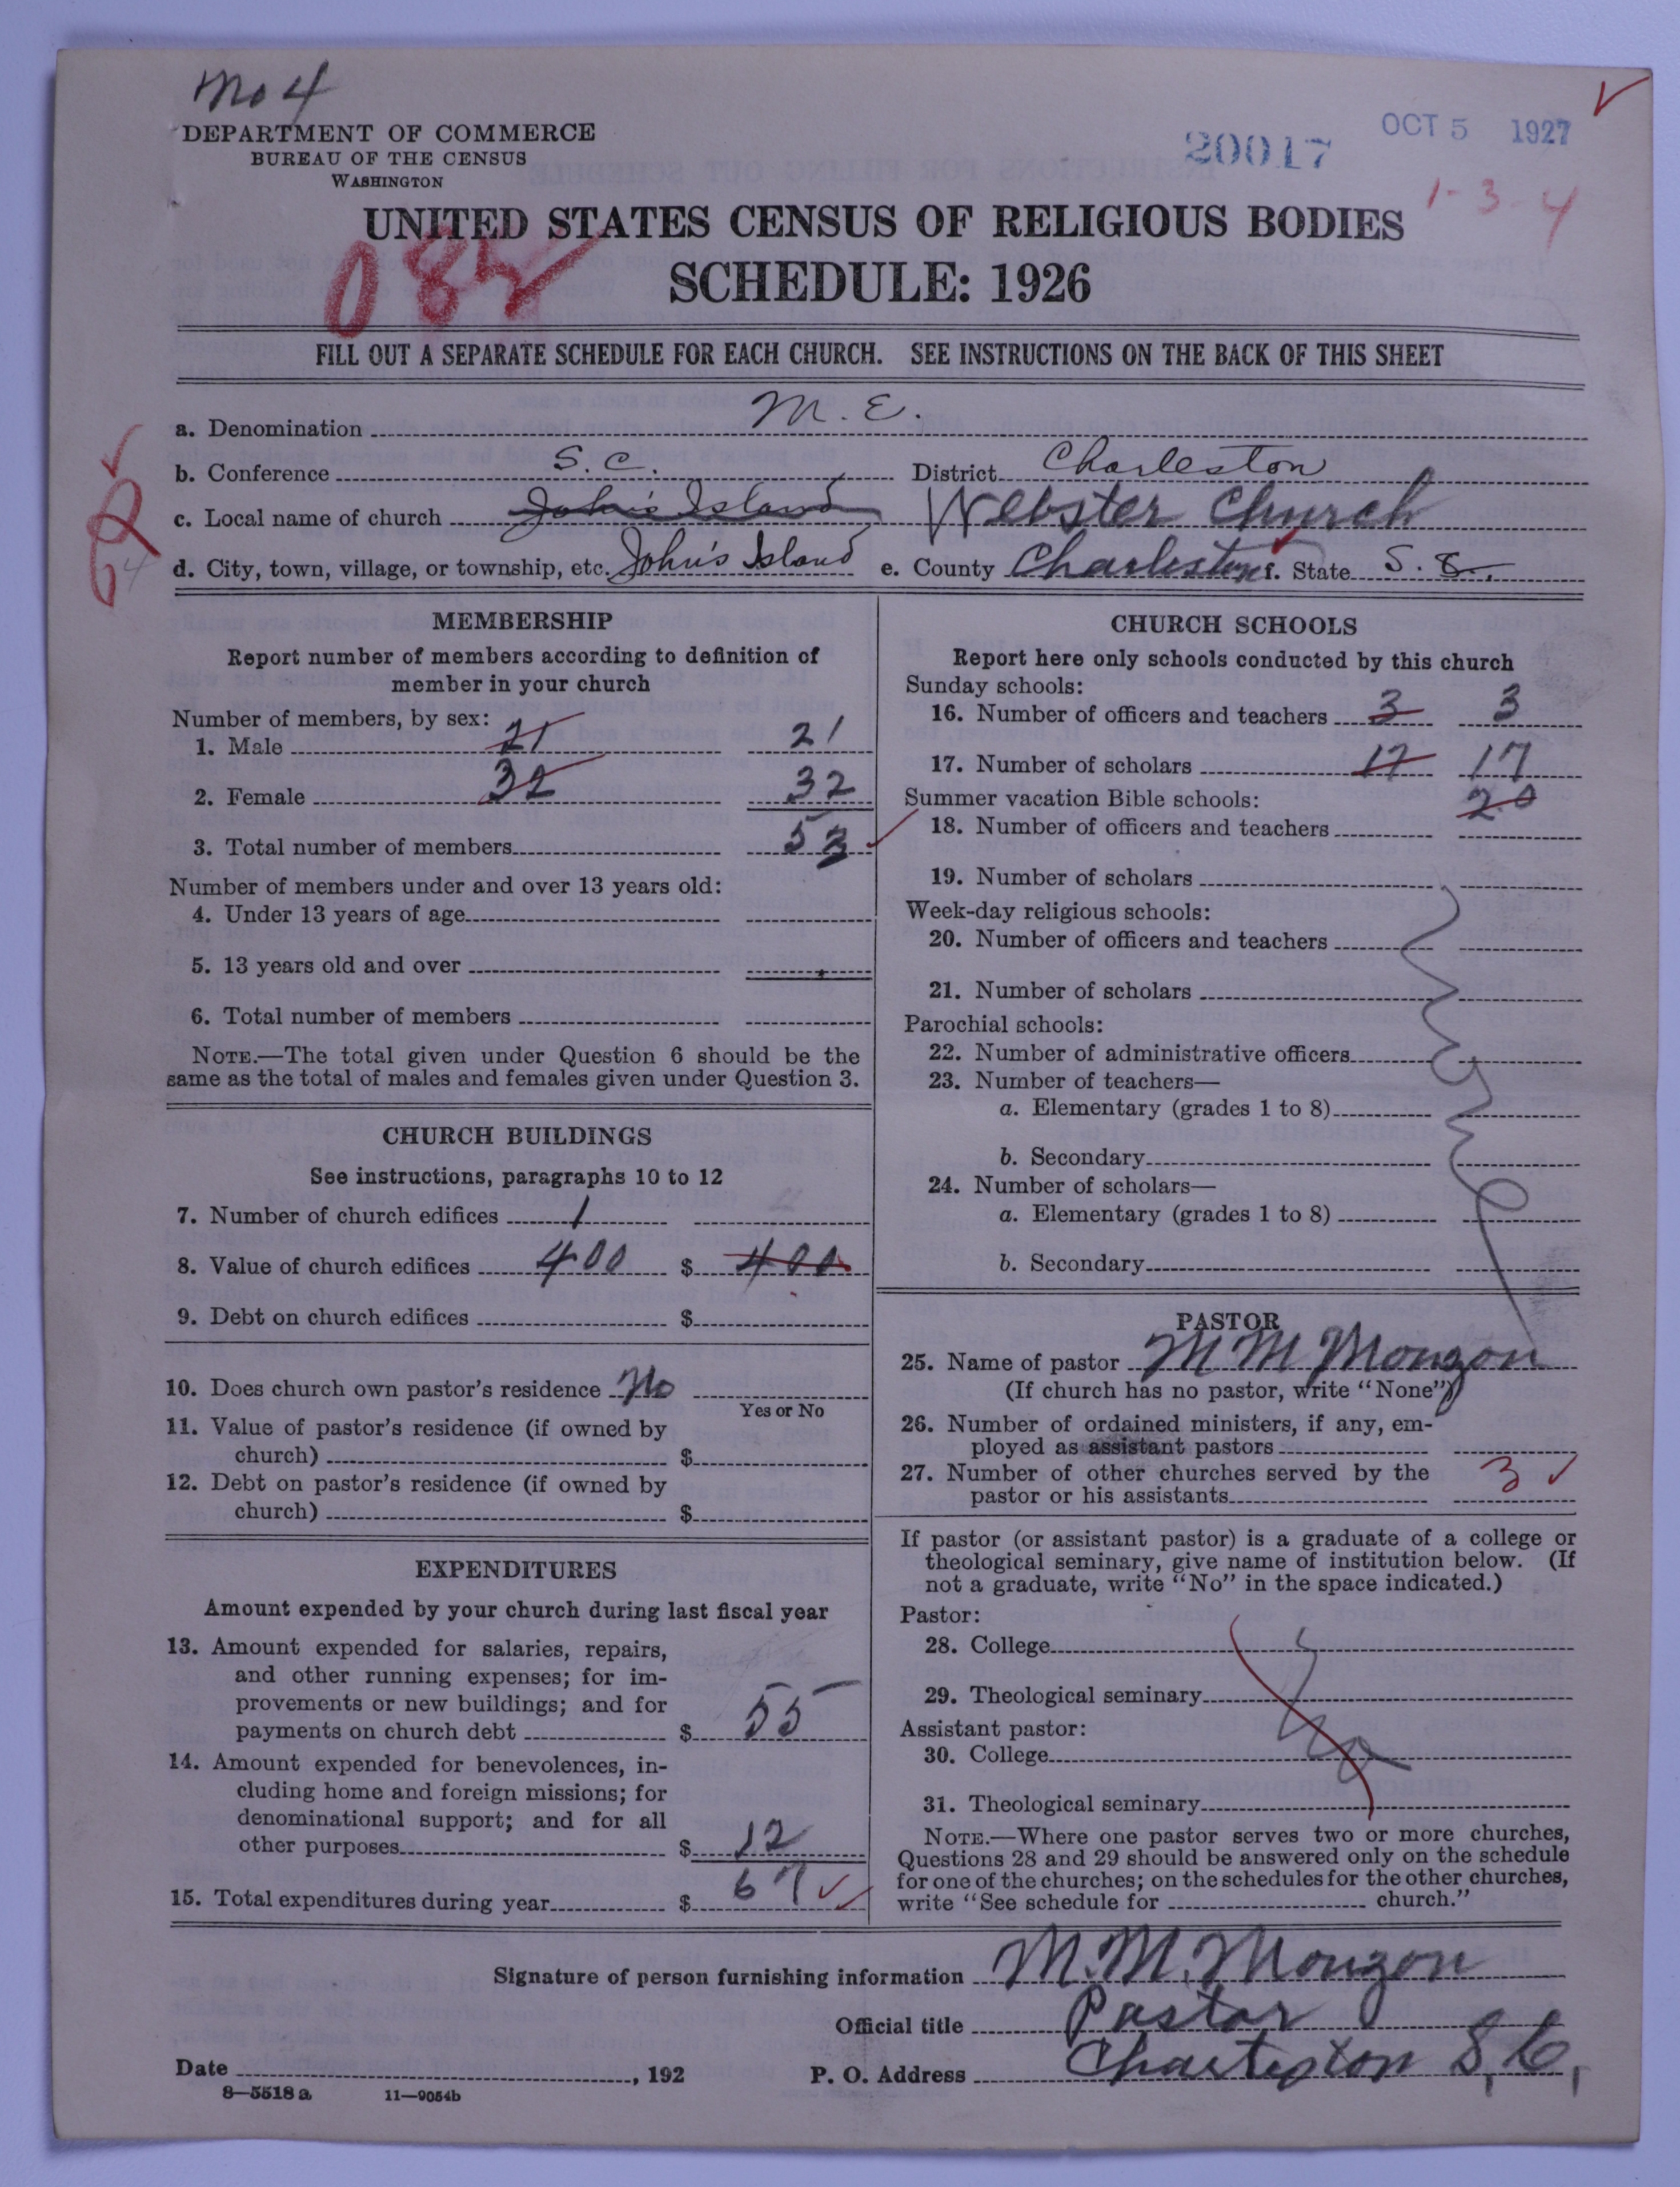 No 4
DEPARTMENT OF COMMERCE
BUREAU OF THE CENSUS
WASHINGTON
20017
OCT 5 1927
1-3-4
UNITED STATES CENSUS OF RELIGIOUS BODIES
SCHEDULE: 1926
082
FILL OUT A SEPARATE SCHEDULE FOR EACH CHURCH. SEE INSTRUCTIONS ON THE BACK OF THIS SHEET
a. Denomination M. E.
b. Conference S. C. District Charleston
c. Local name of church John's Island Webster Church
d. City, town, village, or township, etc. John's Island e. County Charleston f. State S. C.
MEMBERSHIP
Report number of members according to definition of
member in your church
Number of members, by sex:
1. Male 21 21
2. Female 32 32
3. Total number of members 53
Number of members under and over 13 years old:
4. Under 13 years of age
5. 13 years old and over
6. Total number of members
NOTE.—The total given under Question 6 should be the
same as the total of males and females given under Question 3.
CHURCH BUILDINGS
See instructions, paragraphs 10 to 12
7. Number of church edifices 1
8. Value of church edifices 400 $ 400
9. Debt on church edifices $
10. Does church own pastor's residence No
Yes or No
11. Value of pastor's residence (if owned by
church) $
12. Debt on pastor's residence (if owned by
church) $
EXPENDITURES
Amount expended by your church during last fiscal year
13. Amount expended for salaries, repairs,
and other running expenses; for im-
provements or new buildings; and for
payments on church debt $ 55
14. Amount expended for benevolences, in-
cluding home and foreign missions; for
denominational support; and for all
other purposes $ 12
15. Total expenditures during year $ 67
CHURCH SCHOOLS
Report here only schools conducted by this church
Sunday schools:
16. Number of officers and teachers 3 3
17. Number of scholars 17 17
Summer vacation Bible schools: 20
18. Number of officers and teachers
19. Number of scholars
Week-day religious schools:
20. Number of officers and teachers
21. Number of scholars
Parochial schools:
22. Number of administrative officers
23. Number of teachers—
a. Elementary (grades 1 to 8)
b. Secondary
24. Number of scholars—
a. Elementary (grades 1 to 8)
b. Secondary
PASTOR
25. Name of pastor M M Mouzon
(If church has no pastor, write "None")
26. Number of ordained ministers, if any, em-
ployed as assistant pastors
27. Number of other churches served by the
pastor or his assistants 3
If pastor (or assistant pastor) is a graduate of a college or
theological seminary, give name of institution below. (If
not a graduate, write "No" in the space indicated.)
Pastor:
28. College
29. Theological seminary
Assistant pastor: No
30. College
31. Theological seminary
NOTE.—Where one pastor serves two or more churches,
Questions 28 and 29 should be answered only on the schedule
for one of the churches; on the schedules for the other churches,
write "See schedule for church."
Signature of person furnishing information M. M. Mouzon
Official title Pastor
Date , 192 P. O. Address Charleston S, C,
8—5518 a 11—9054b